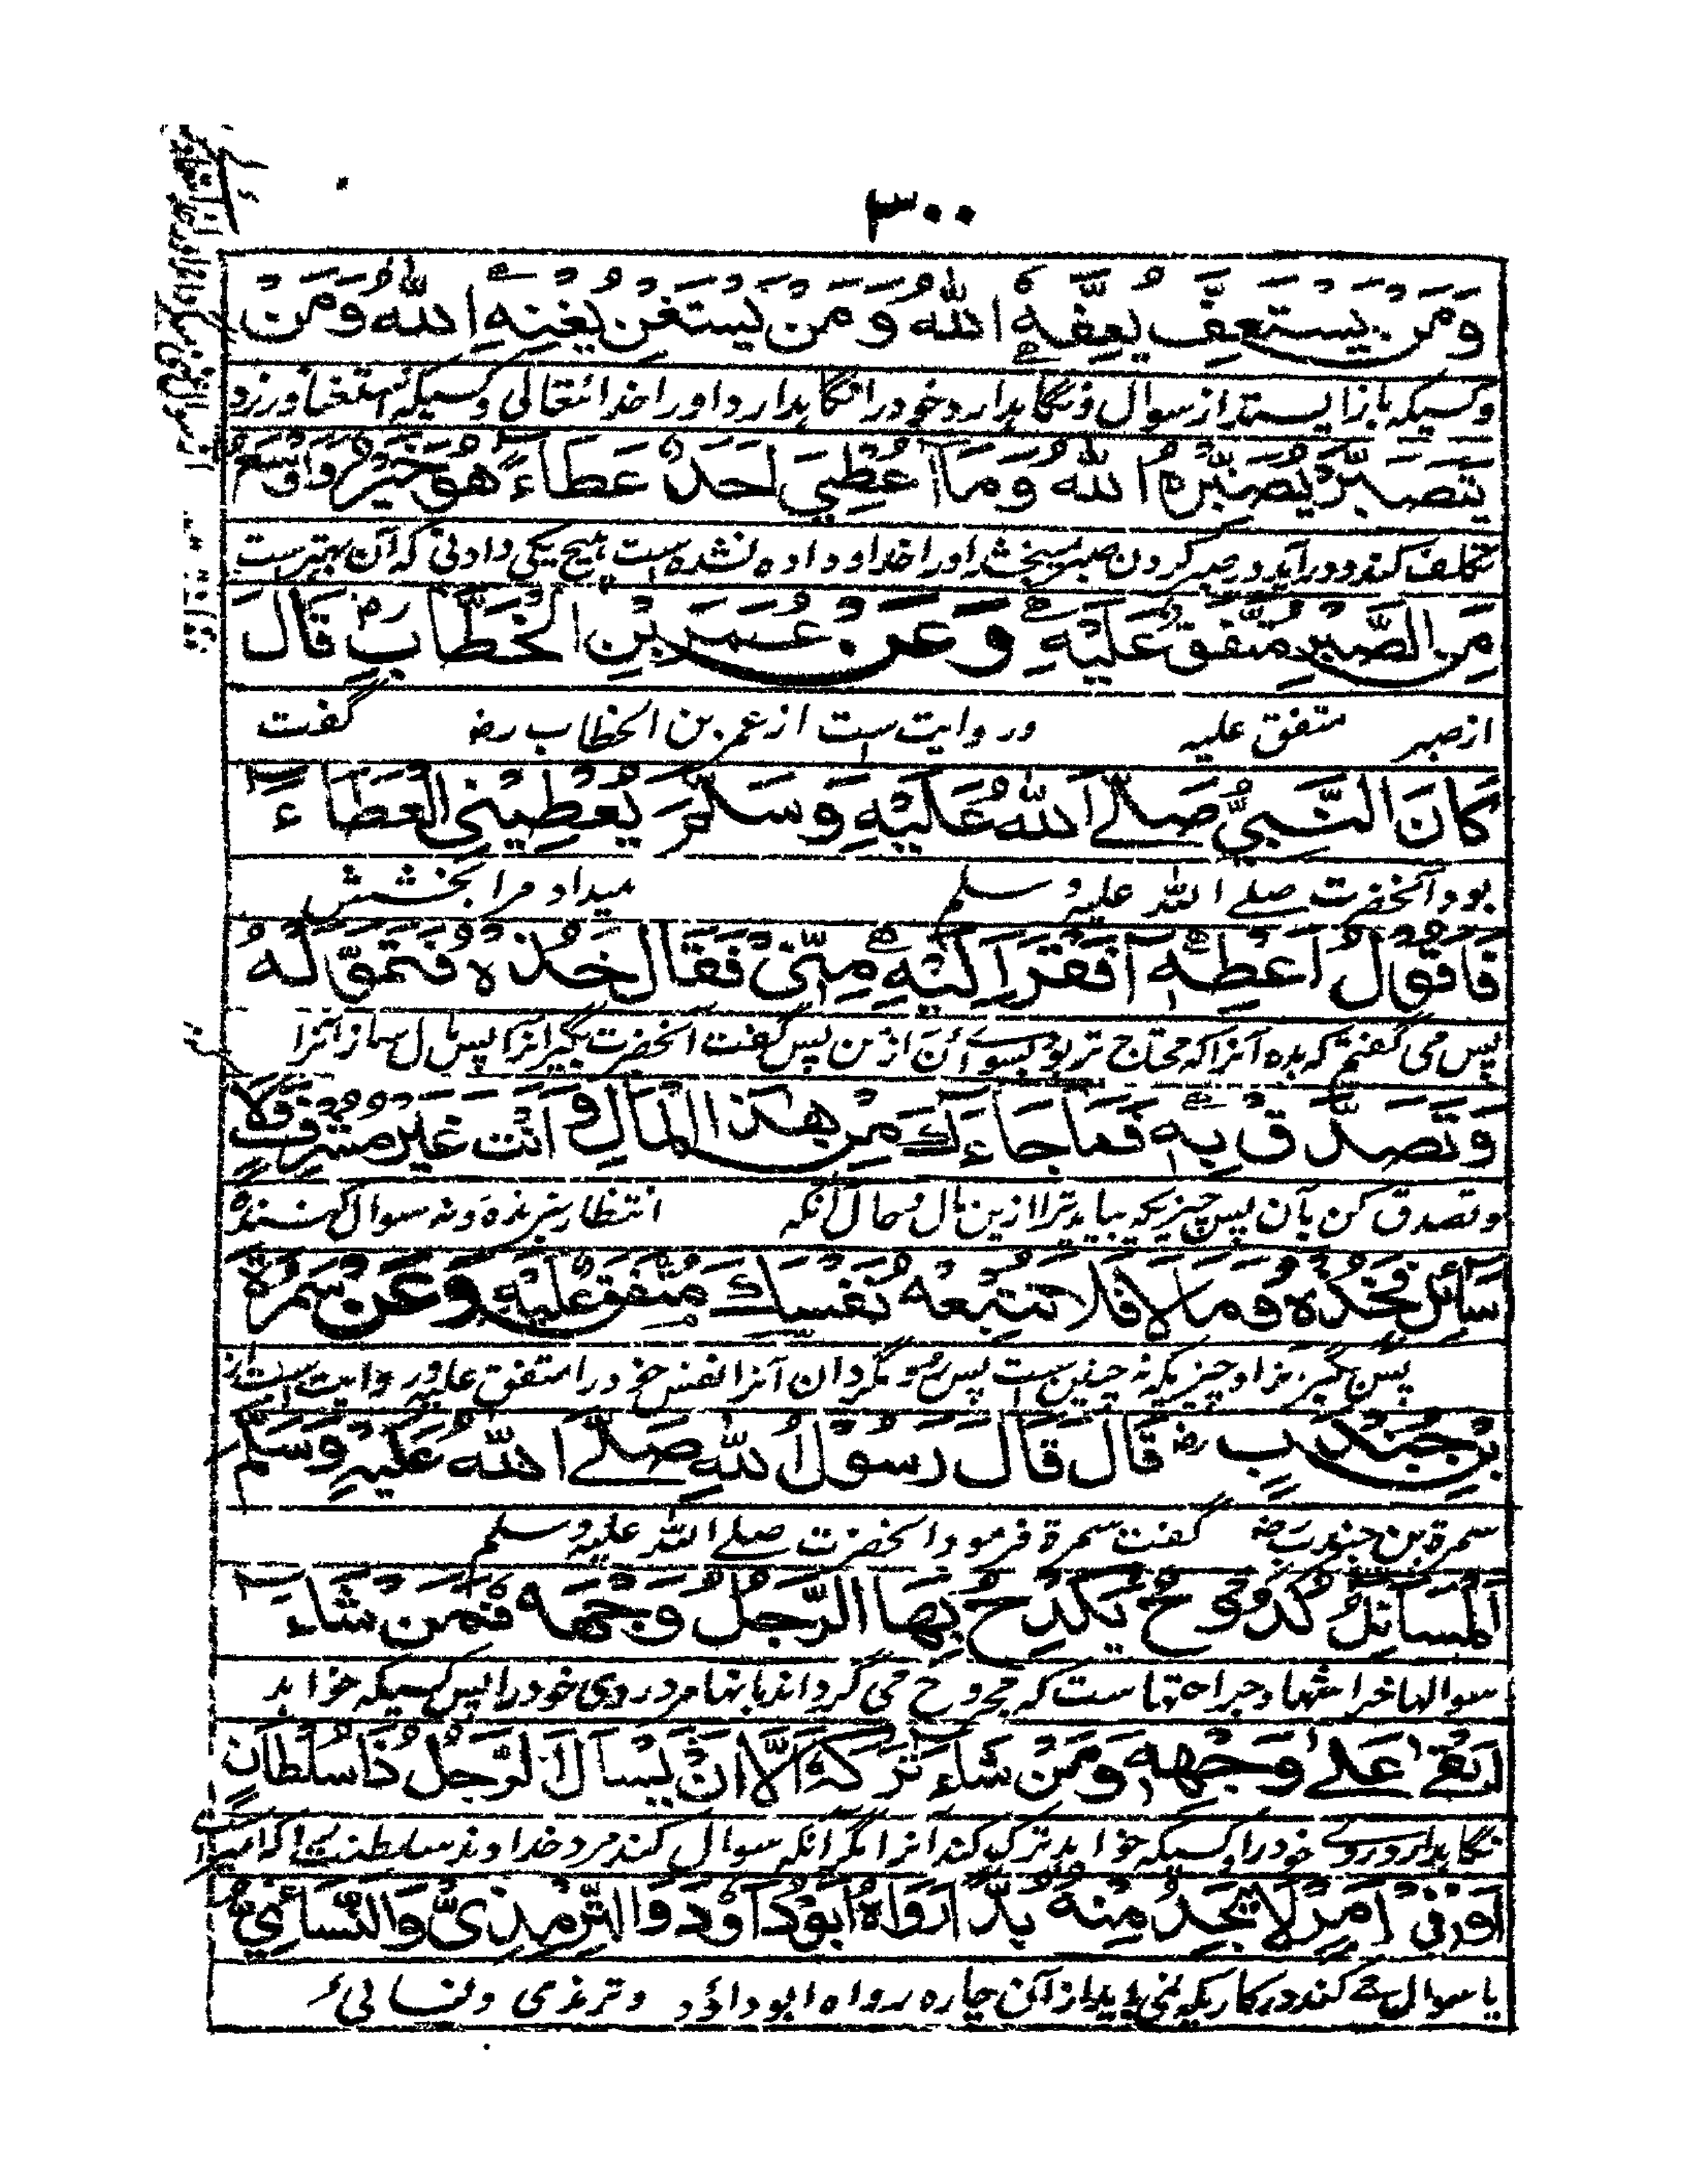 ٣٠٠
وَمَنْ يَسْتَعِفَّ يُعِفَّهُ اللهُ وَمَنْ يَسْتَغْنِ يُغْنِهِ اللهُ وَمَنْ
وکسیکہ باز ایستد از سوال ونگاہدارد خود را نگاہدارد اورا خدائتعالی وکسیکہ استغنا ورزد
يَتَصَبَّرْ يُصَبِّرْهُ اللهُ وَمَا اُعْطِيَ اَحَدٌ عَطَاءً هُوَ خَيْرٌ وَاَوْسَعُ
تکلف کند ودرآید در صبر کردن صبر بخشد اورا خدا وداده نشده است ہیچ یکی دادنی کہ آن بہترست
مِنَ الصَّبْرِ مُتَّفَقٌ عَلَيْهِ وَعَنْ عُمَرَ بْنِ الْخَطَّابِ رض قَالَ
از صبر متفق علیہ وروایت ست از عمر بن الخطاب رضہ گفت
كَانَ النَّبِيُّ صَلَّے اللهُ عَلَيْهِ وَسَلَّمَ يُعْطِيْنِي الْعَطَاءَ
بود آنحضرت صلے اللہ علیہ وسلم میداد مرا بخشش
فَاَقُوْلُ اَعْطِهٖ اَفْقَرَ اِلَيْهِ مِنِّيْ فَقَالَ خُذْهُ فَتَمَوَّلْهُ
پس می گفتم کہ بدہ آنرا کہ محتاج تر بود بسوے آن از من پس گفت آنحضرت بگیر آنرا پس مال ساز آنرا
وَتَصَدَّقْ بِهٖ فَمَا جَاءَكَ مِنْ هٰذَا الْمَالِ وَاَنْتَ غَيْرُ مُشْرِفٍ وَّلَا
وتصدق کن بآن پس چیزیکہ بیاید ترا ازین مال وحال آنکہ انتظار برندہ ونہ سوال کنندہ
سَائِلٍ فَخُذْهُ وَمَا لَا فَلَا تُتْبِعْهُ نَفْسَكَ مُتَّفَقٌ عَلَيْهِ وَعَنْ سَمُرَةَ
پس بگیر آنرا وچیزیکہ نہ چنین ست پس مگردان آنرا نفس خود را متفق علیہ وروایت ست از
بْنِ جُنْدُبٍ رضہ قَالَ قَالَ رَسُوْلُ اللهِ صَلَّے اللهُ عَلَيْهِ وَسَلَّمَ
سمرۃ بن جندب رضہ گفت سمرۃ فرمود آنحضرت صلے اللہ علیہ وسلم
اَلْمَسَائِلُ كُدُوْحٌ يَكْدَحُ بِهَا الرَّجُلُ وَجْهَهُ فَمَنْ شَاءَ
سوالہا خراشہا وجراحتہاست کہ مجروح می گرداند بآنہا مرد روی خود را پس کسیکہ خواہد
اَبْقٰے عَلٰے وَجْهِهٖ وَمَنْ شَاءَ تَرَكَهُ اِلَّا اَنْ يَّسْاَلَ الرَّجُلُ ذَا سُلْطَانٍ
نگاہدارد روے خود را وکسیکہ خواہد ترک کند آنرا مگر آنکہ سوال کند مرد خداوند سلطنت را
اَوْ فِيْ اَمْرٍ لَا يَجِدُ مِنْهُ بُدًّا رَوَاهُ اَبُوْدَاوٗدَ وَالتِّرْمِذِيُّ وَالنَّسَائِيُّ
یا سوال کند در کاریکہ نمی یابد از آن چارہ رواہ ابوداؤد وترمذی ونسائی